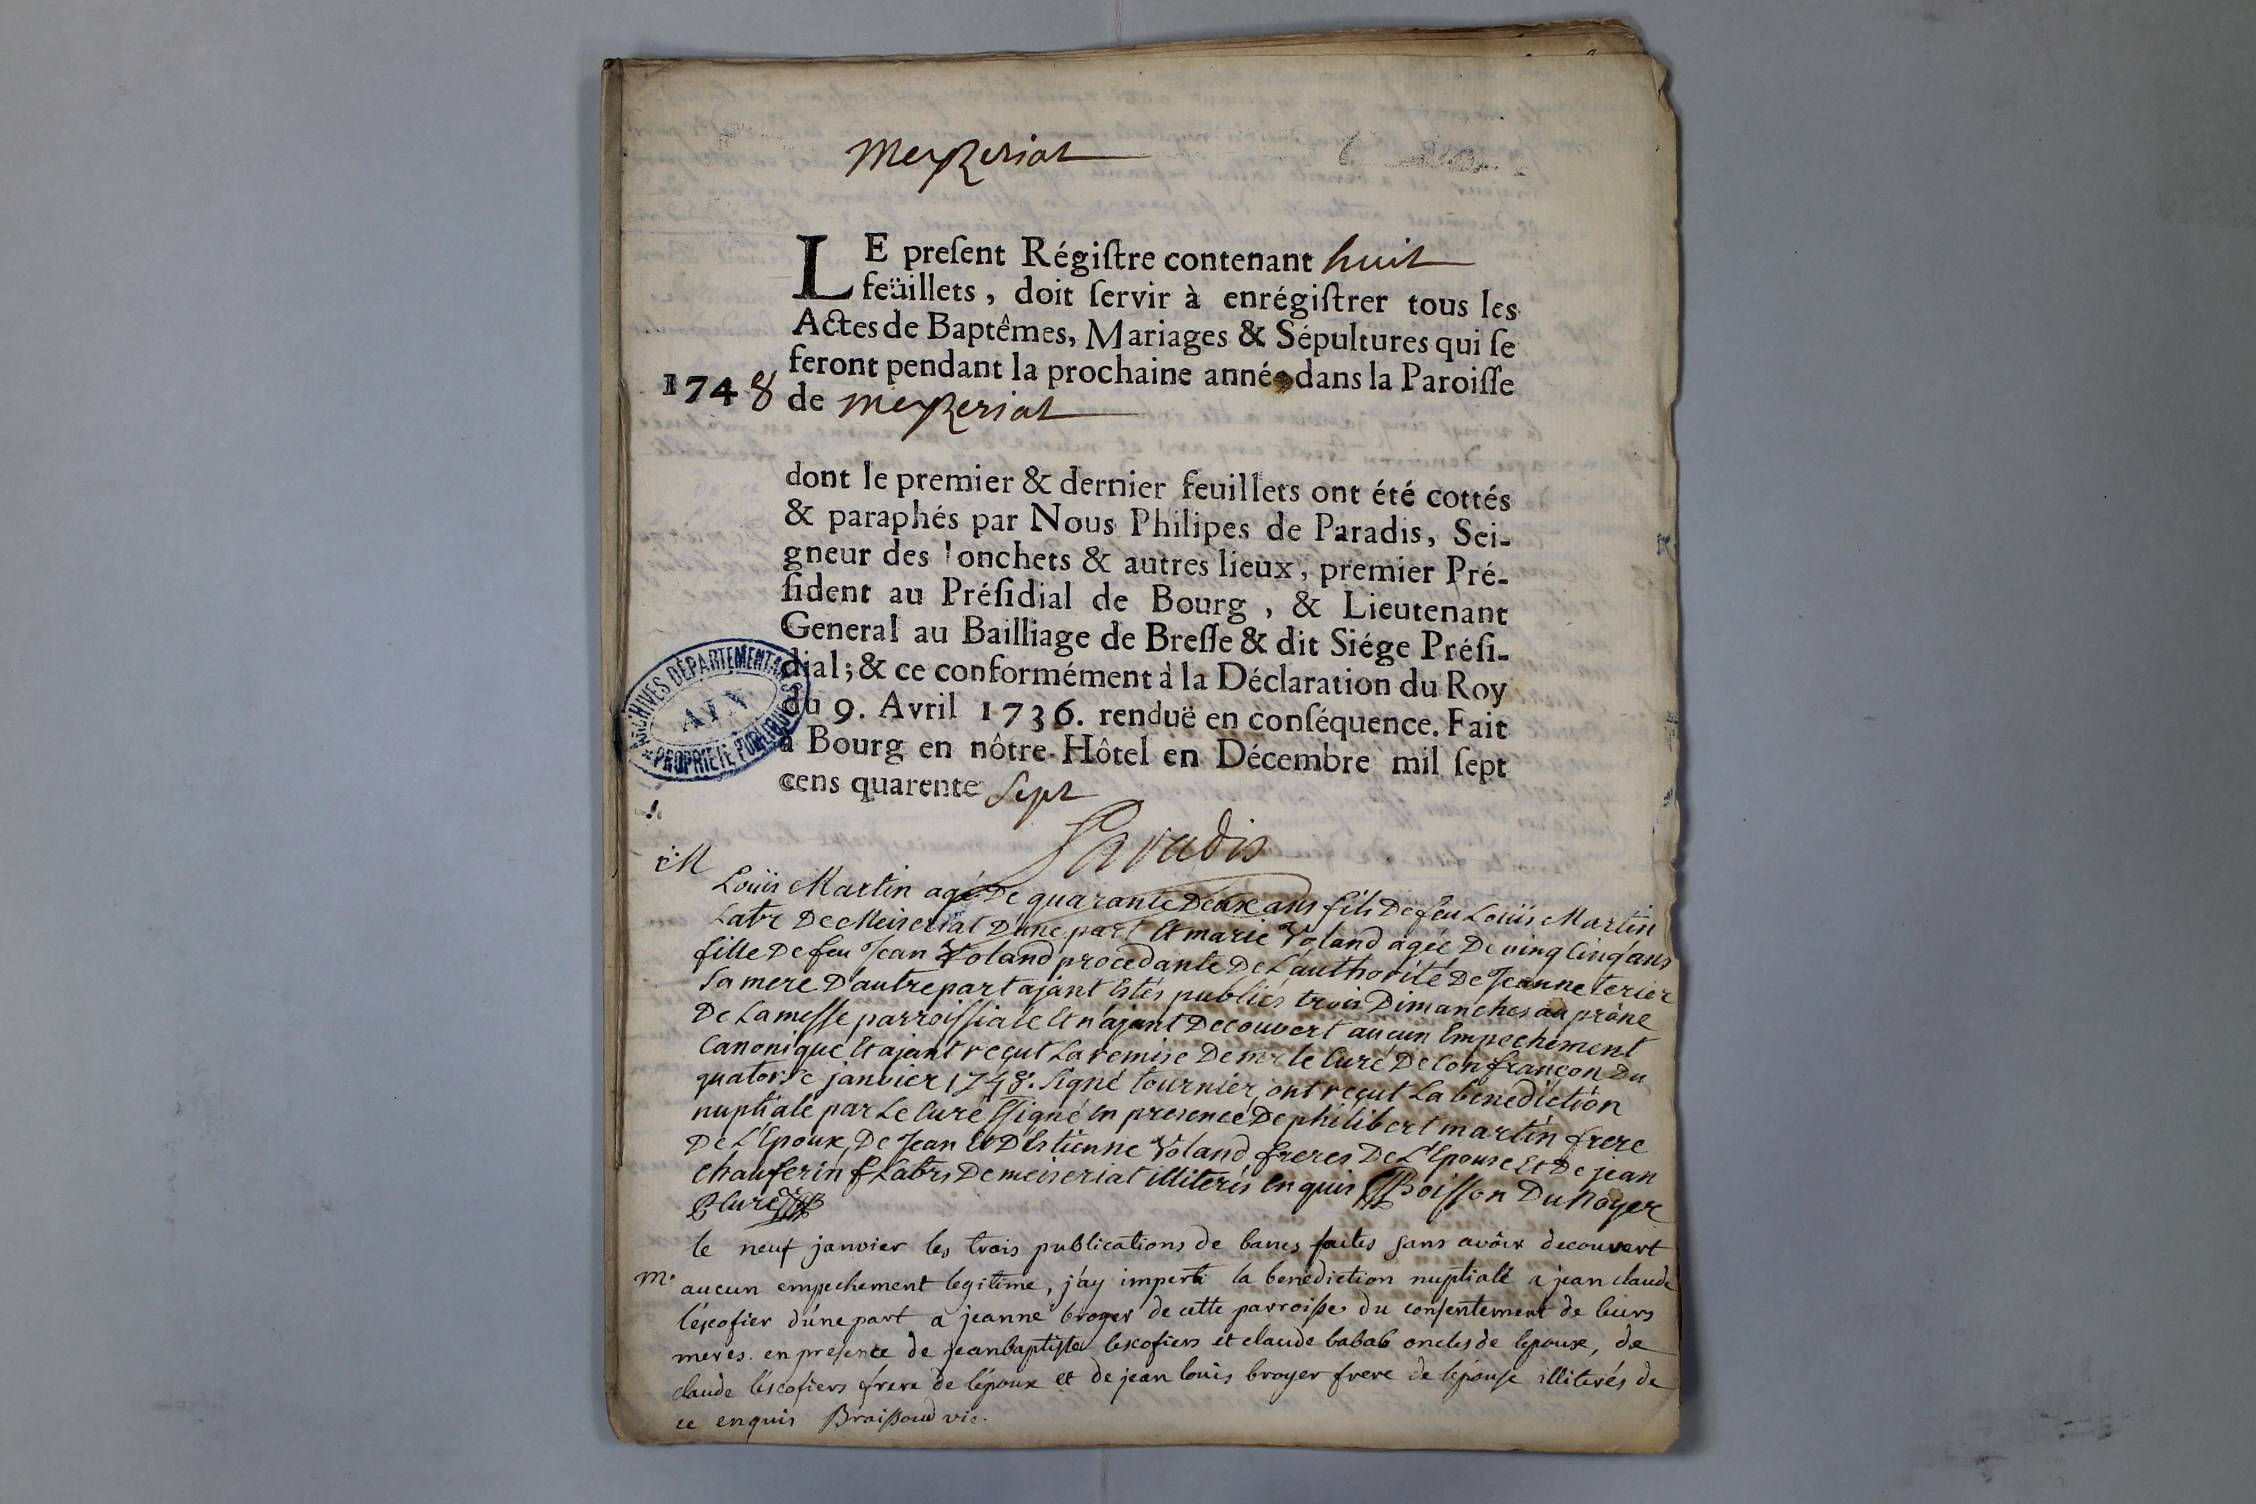 Meyzeriat
LE preſent Régiſtre contenant huit
feüillets, doit ſervir à enrégiſtrer tous les
Actes de Baptêmes, Mariages & Sépultures qui ſe
feront pendant la prochaine année dans la Paroiſſe
1748 de Meyzeriat
dont le premier & dernier feuillets ont été cottés
& paraphés par Nous Philipes de Paradis, Sei-
gneur des onchets & autres lieux, premier Pré-
ſident au Préſidial de Bourg, & Lieutenant
General au Bailliage de Breſſe & dit Siége Préſi-
dial; & ce conformément à la Déclaration du Roy
du 9. Avril 1736. renduë en conſéquence. Fait
à Bourg en nôtre Hôtel en Décembre mil ſept
cens quarente Sept
ARCHIVES DÉPARTEMENTALES
AIN
PROPRIÉTÉ PUBLIQUE
Paradis
M
Loüis Martin agé De quarante Deux ans fils De feu Loüis Martin
Labr De Meiseriat D'une part Et marie Voland agée De vingt Cinq ans
fille De feu Jean Voland procedante De L'authorité De Jeanne terier
Sa mere D'autre part ajant Estés publiés trois Dimanches au prône
De La messe parroissiale Et n'ajant Decouvert aucun Empechement
Canonique Et ajant reçut La remise De mr le Curé De Confrançon Du
quatorse janvier 1748. signé tournier, ont reçut La benediction
nuptiale par Le Curé ssigné En presence De philibert martin frere
De L'Epoux, De Jean Et D'Estienne Voland freres De L'Epouse Et De jean
Chauferin Labrs De meiseriat illiterés Enquis Boisson Du Noyer
Curé
le neuf janvier les trois publications de bancs faites sans avoir decouvert
M. aucun empechement legitime, j'ay imparti la benediction nuptiale a jean claude
léscofier d'une part a jeanne broyer de cette parroisse du consentement de leurs
meres. en presence de jean baptiste lescofiers et claude babab oncles de lepoux, de
claude léscofiers frere de lépoux et de jean louis broyer frere de lépouse illiterés de
ce enquis Braissoud vic.